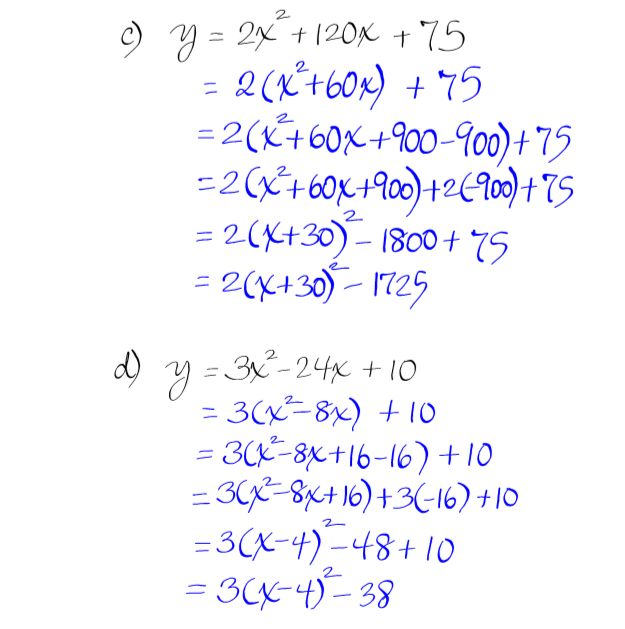 c) y = 2x² + 120x + 75
= 2(x²+60x) + 75
= 2(x²+60x+900-900)+75
= 2(x²+60x+900)+2(-900)+75
= 2(x+30)² - 1800 + 75
= 2(x+30)² - 1725
d) y = 3x² - 24x + 10
= 3(x²-8x) + 10
= 3(x²-8x+16-16) + 10
= 3(x²-8x+16)+3(-16)+10
= 3(x-4)² - 48 + 10
= 3(x-4)² - 38